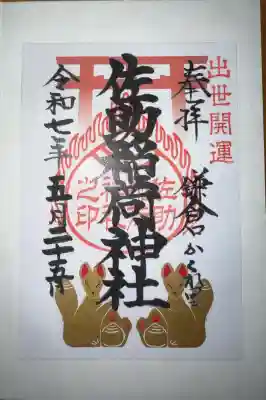 出世開運
奉拝 鎌倉かくれ里
佐助稲荷神社
佐助稲荷神社之印
令和七年五月二十五日